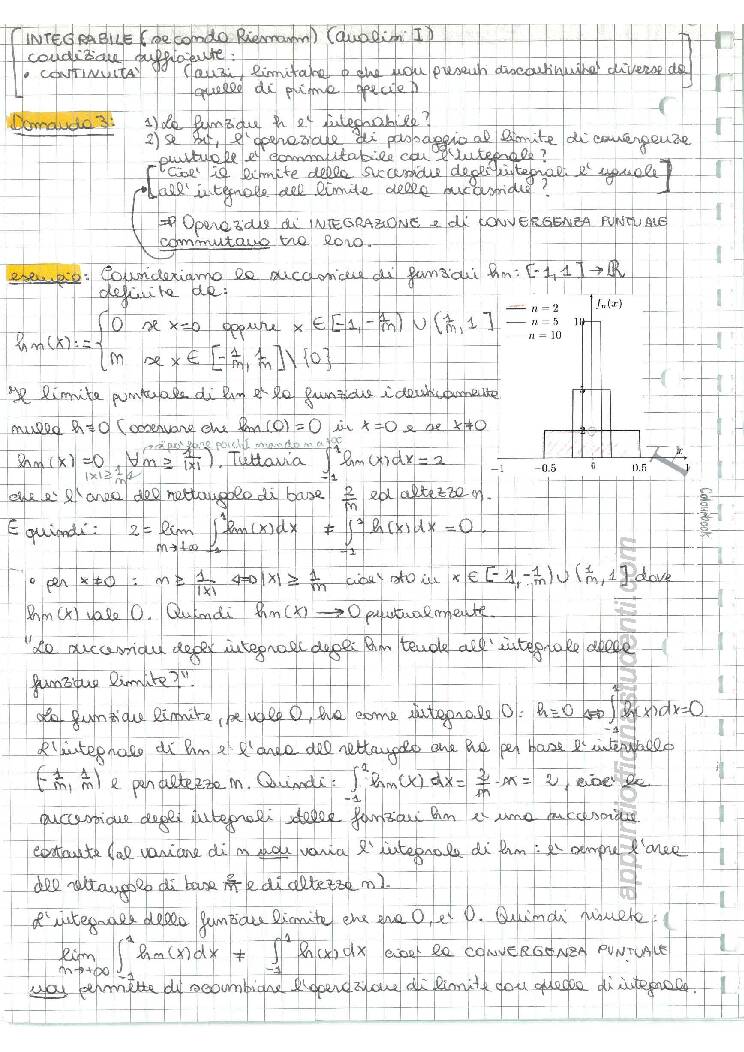 INTEGRABILE (secondo Riemann) (Analisi I)
condizioni sufficiente:
• CONTINUITÀ (anzi, limitata e che non presenti discontinuità diverse da
quelle di prima specie)
Domanda 3: 1) La funzione h è integrabile?
2) Se sì, l'operazione di passaggio al limite di convergenza
puntuale è commutabile con l'integrale?
Cioè il limite della successione degli integrali è uguale
all'integrale del limite della successione?
⇒ Operazioni di INTEGRAZIONE e di CONVERGENZA PUNTUALE
commutano tra loro.
esempio: Consideriamo la successione di funzioni hn: [-1,1] → ℝ
definita da:
hn(x) := { 0 se x=0 oppure x ∈ [-1, -1/n) ∪ (1/n, 1]
n se x ∈ [-1/n, 1/n] \ {0}
n = 2
n = 5
n = 10
fn(x)
10
5
2
x
−1 −0.5 0 0.5 1
Il limite puntuale di hn è la funzione identicamente
nulla h≡0 (osservare che hn(0)=0 in x=0 e se x≠0
hn(x)=0 ∀n ≥ 1/|x|). Tuttavia ∫₋₁¹ hn(x)dx = 2
|x| ≥ 1/n
che è l'area del rettangolo di base 2/n ed altezza n.
E quindi: 2 = lim n→+∞ ∫₋₁¹ hn(x)dx ≠ ∫₋₁¹ h(x)dx = 0.
• per x≠0 : n ≥ 1/|x| ⇔ |x| ≥ 1/n cioè sto in x ∈ [-1, -1/n) ∪ (1/n, 1] dove
hn(x) vale 0. Quindi hn(x) → 0 puntualmente.
"La successione degli integrali degli hn tende all'integrale della
funzione limite?".
La funzione limite, se vale 0, ha come integrale 0: h≡0 ⇔ ∫₋₁¹ h(x)dx=0
L'integrale di hn è l'area del rettangolo che ha per base l'intervallo
(-1/n, 1/n) e per altezza n. Quindi: ∫₋₁¹ hn(x)dx = 2/n · n = 2, cioè la
successione degli integrali delle funzioni hn è una successione
costante (al variare di n non varia l'integrale di hn: è sempre l'area
del rettangolo di base 2/n e di altezza n).
L'integrale della funzione limite che era 0, è 0. Quindi risulta:
lim n→+∞ ∫₋₁¹ hn(x)dx ≠ ∫₋₁¹ h(x)dx cioè la CONVERGENZA PUNTUALE
non permette di scambiare l'operazione di limite con quella di integrale.
Colourbook
appuntiofficinastudenti.com